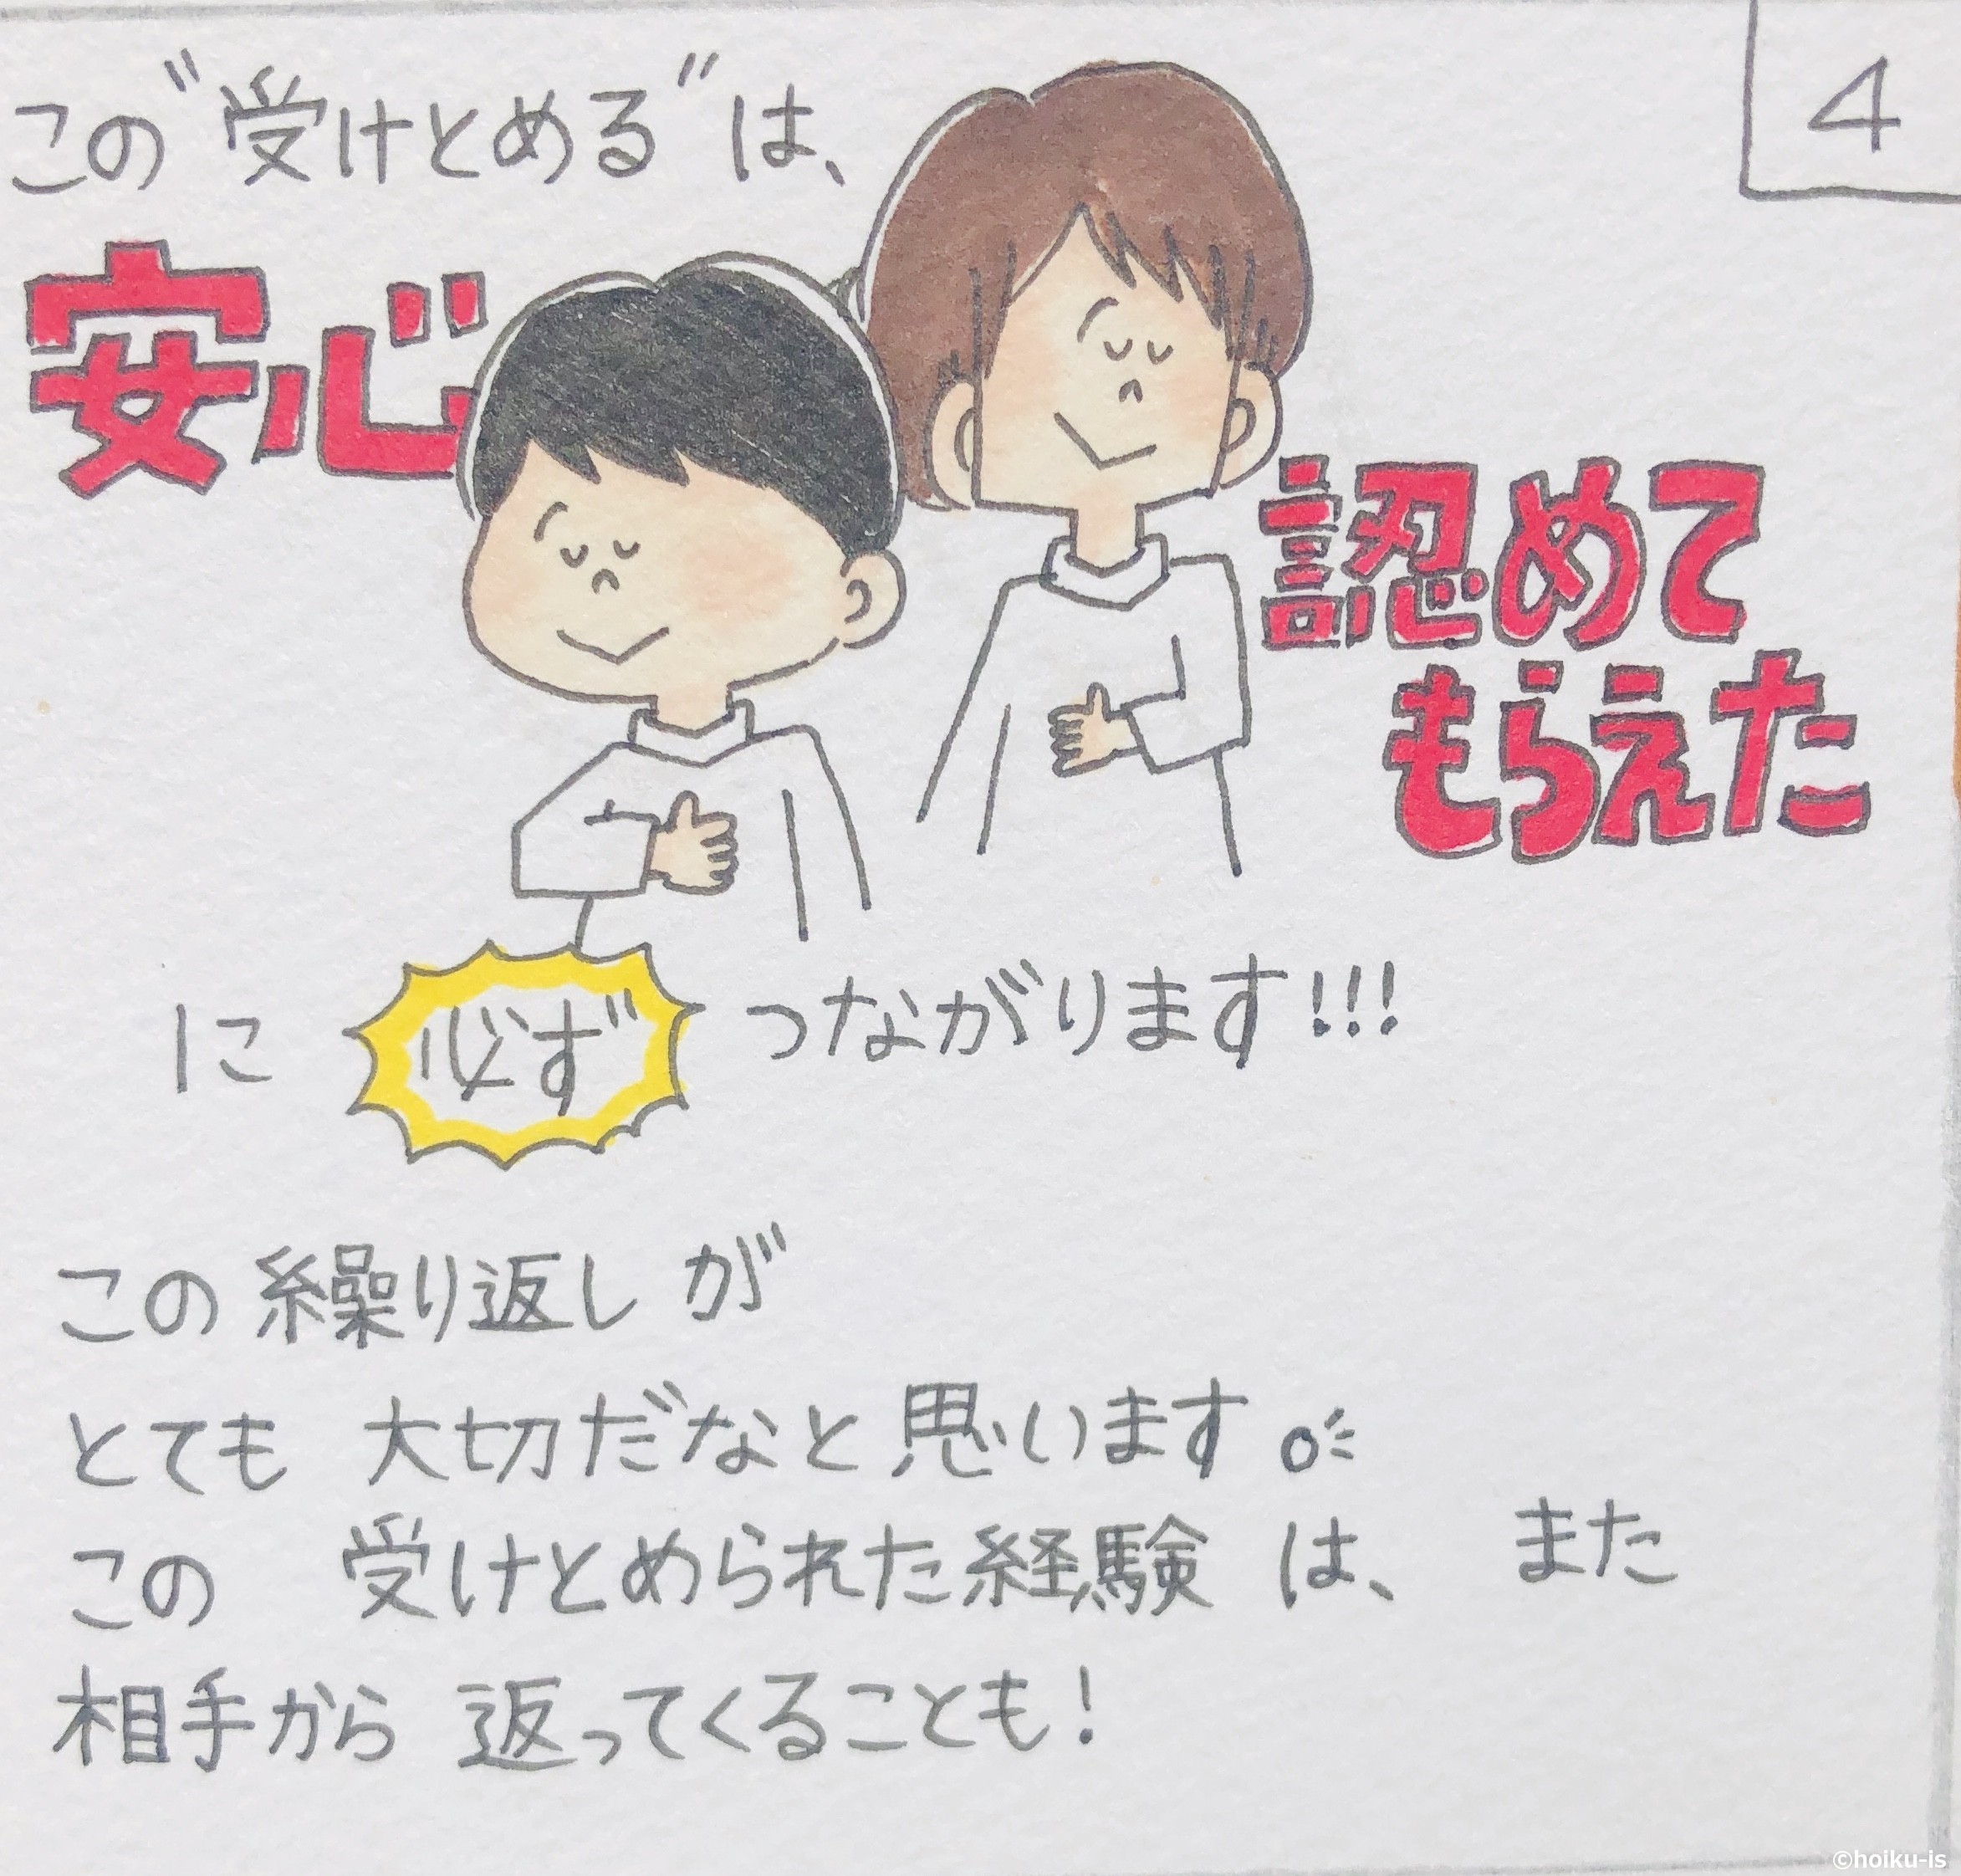 4
この"受けとめる"は、
安心
認めて
もらえた
に 必ず つながります!!!
この繰り返しが
とても 大切だなと思います。
この 受けとめられた経験 は、また
相手から 返ってくることも!
©hoiku-is